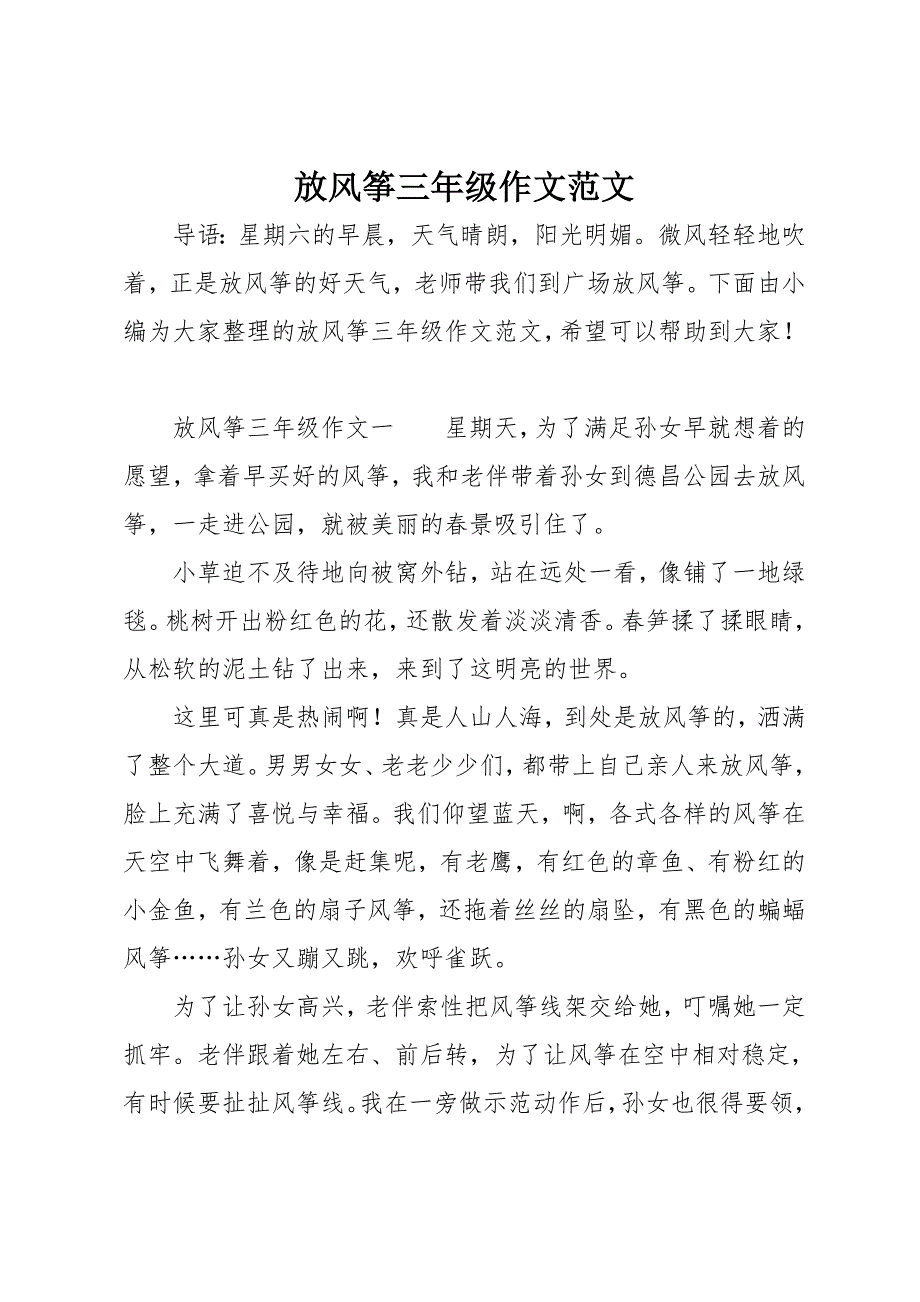 放风筝三年级作文范文
导语：星期六的早晨，天气晴朗，阳光明媚。微风轻轻地吹
着，正是放风筝的好天气，老师带我们到广场放风筝。下面由小
编为大家整理的放风筝三年级作文范文，希望可以帮助到大家！
放风筝三年级作文一　　星期天，为了满足孙女早就想着的
愿望，拿着早买好的风筝，我和老伴带着孙女到德昌公园去放风
筝，一走进公园，就被美丽的春景吸引住了。
小草迫不及待地向被窝外钻，站在远处一看，像铺了一地绿
毯。桃树开出粉红色的花，还散发着淡淡清香。春笋揉了揉眼睛，
从松软的泥土钻了出来，来到了这明亮的世界。
这里可真是热闹啊！真是人山人海，到处是放风筝的，洒满
了整个大道。男男女女、老老少少们，都带上自己亲人来放风筝，
脸上充满了喜悦与幸福。我们仰望蓝天，啊，各式各样的风筝在
天空中飞舞着，像是赶集呢，有老鹰，有红色的章鱼、有粉红的
小金鱼，有兰色的扇子风筝，还拖着丝丝的扇坠，有黑色的蝙蝠
风筝……孙女又蹦又跳，欢呼雀跃。
为了让孙女高兴，老伴索性把风筝线架交给她，叮嘱她一定
抓牢。老伴跟着她左右、前后转，为了让风筝在空中相对稳定，
有时候要扯扯风筝线。我在一旁做示范动作后，孙女也很得要领，